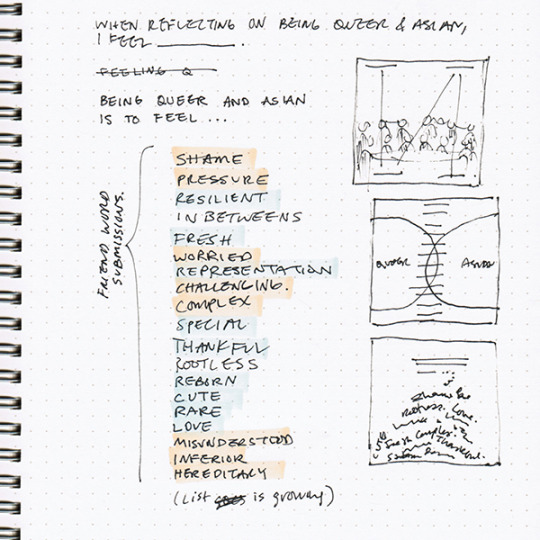 WHEN REFLECTING ON BEING QUEER & ASIAN,
I FEEL ________.
FEELING Q
BEING QUEER AND ASIAN
IS TO FEEL ...
FRIEND WORD
SUBMISSIONS.
SHAME
PRESSURE
RESILIENT
IN BETWEENS
FRESH
WORRIED
REPRESENTATION
CHALLENGING.
COMPLEX
SPECIAL
THANKFUL
ROOTLESS
REBORN
CUTE
RARE
LOVE
MISUNDERSTOOD
INFERIOR
HEREDITARY
(List is growing)
QUEER
ASIAN
Love.
Fresh Complex.
Thankful.